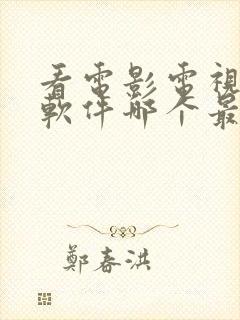 看電影電視
軟件哪个最
鄭春洪